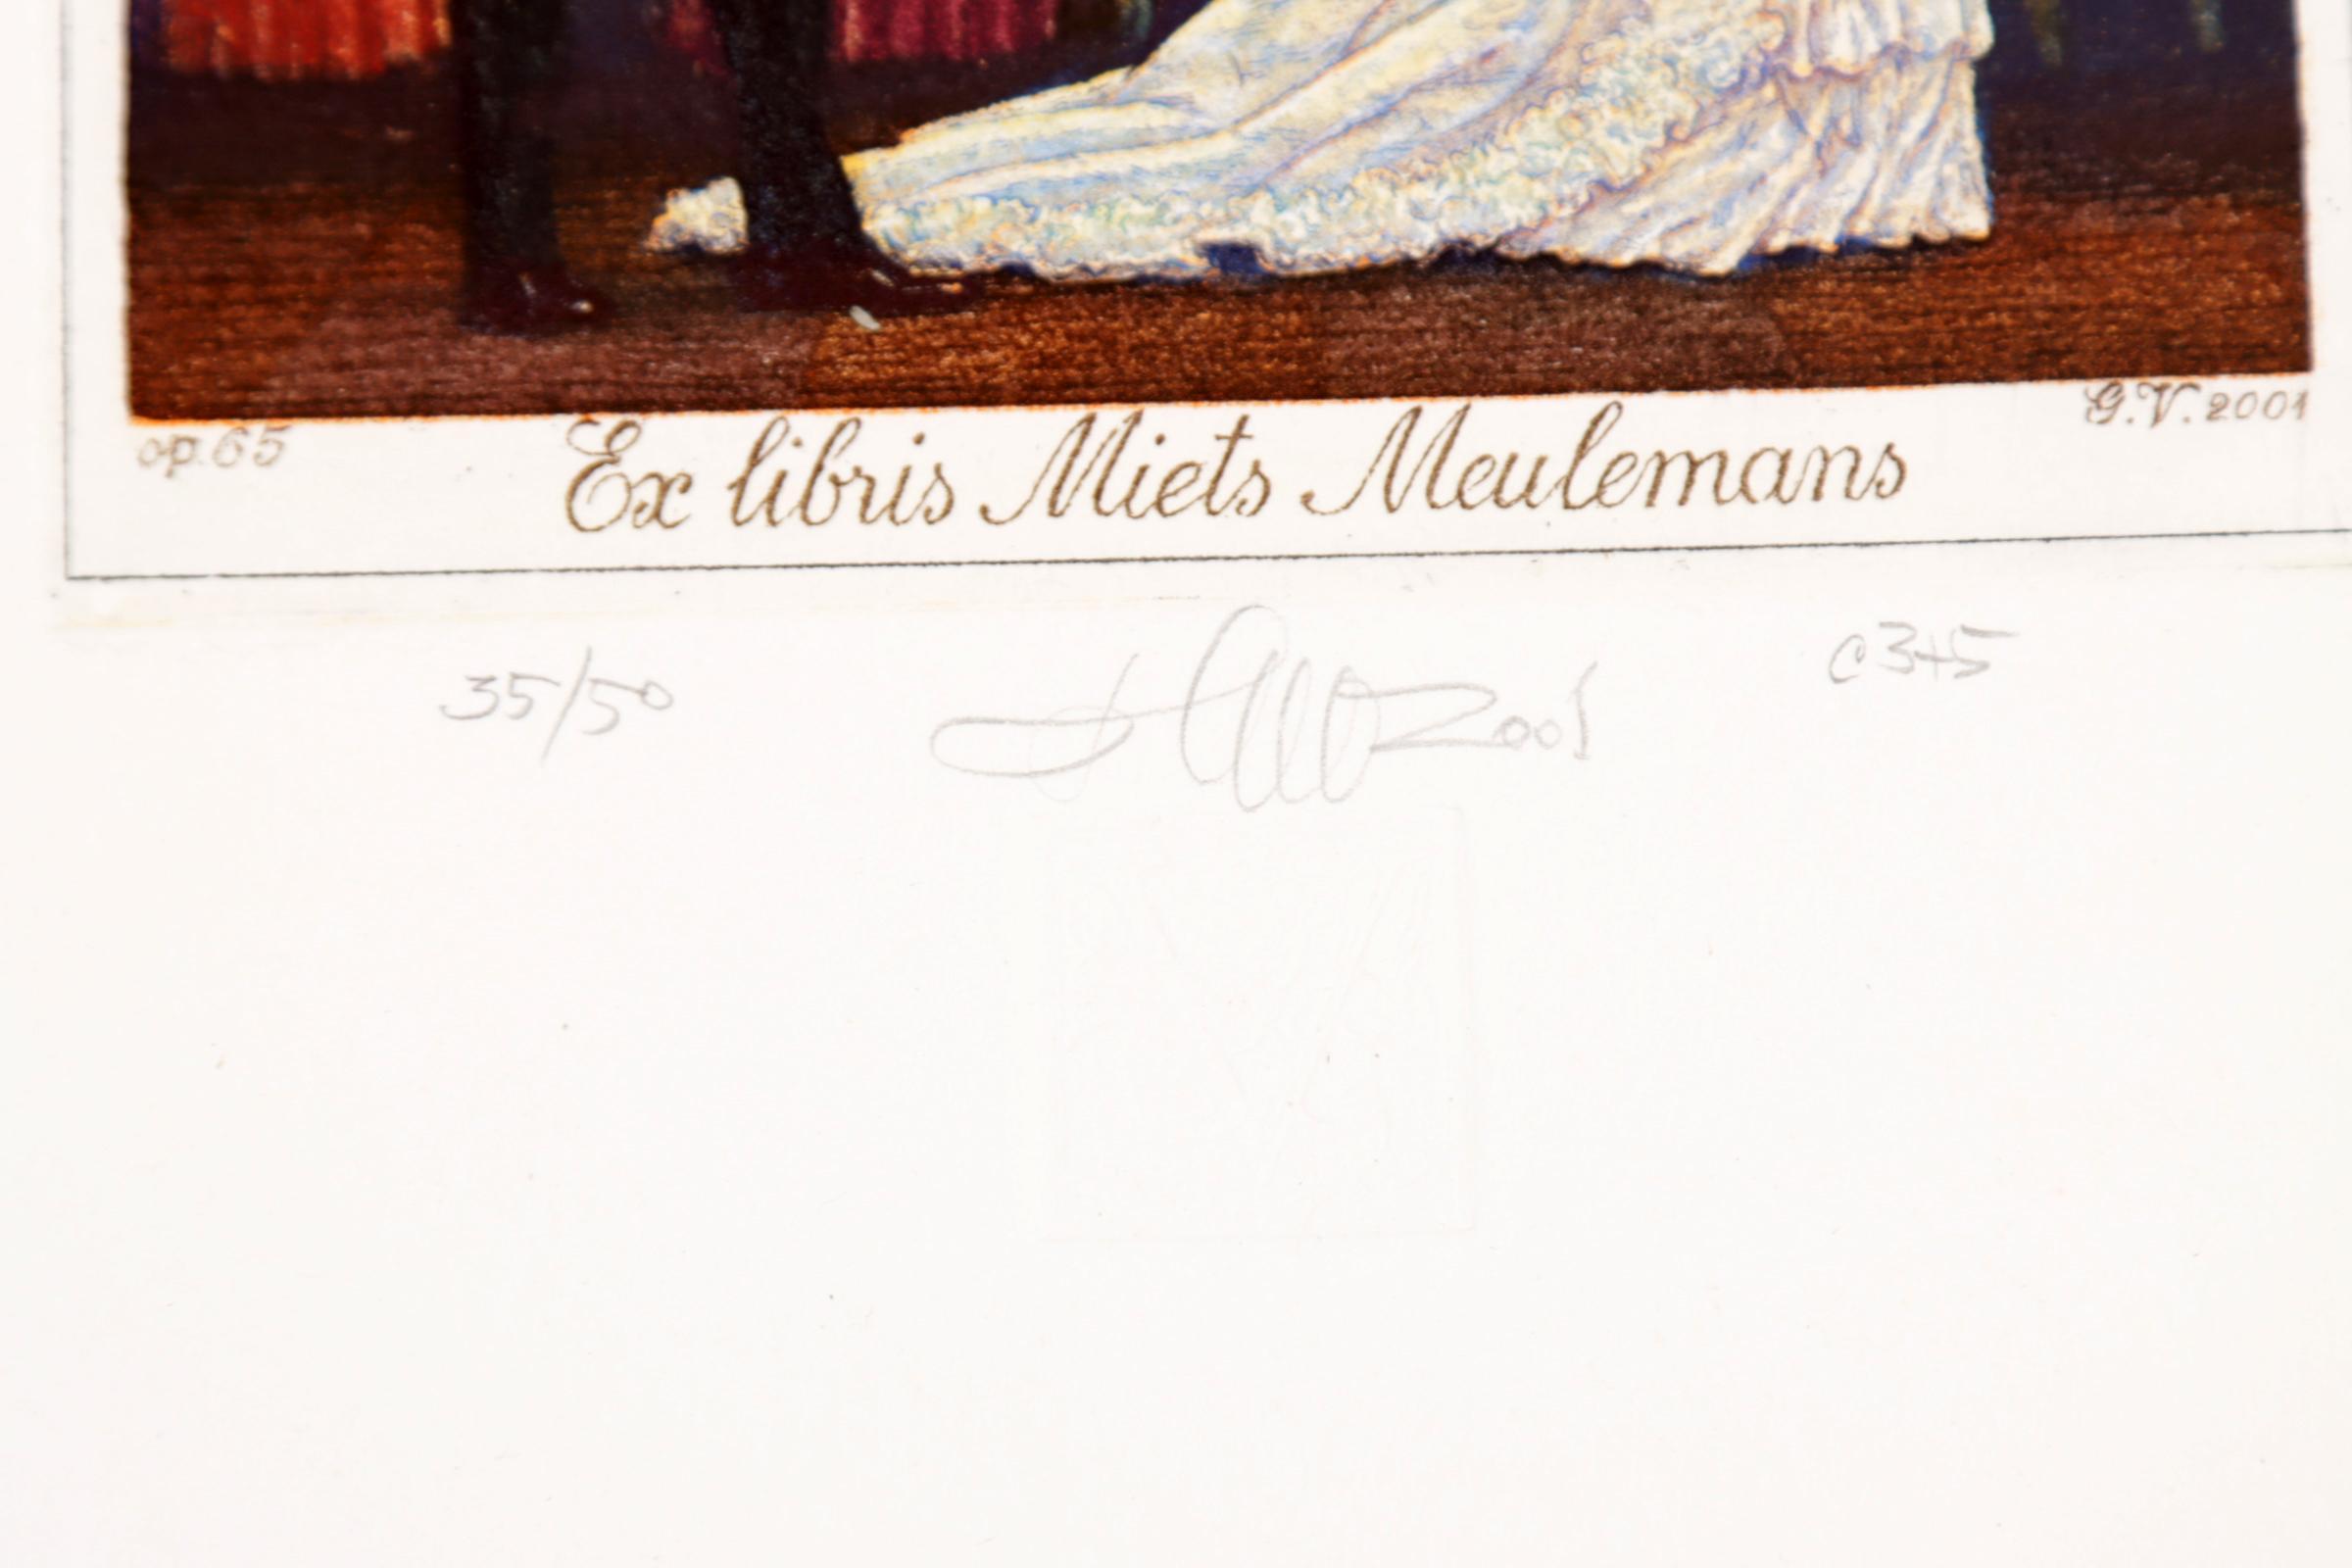 op. 65
Ex libris Miets Meulemans
G.V. 2001
35/50
2001
c3+5